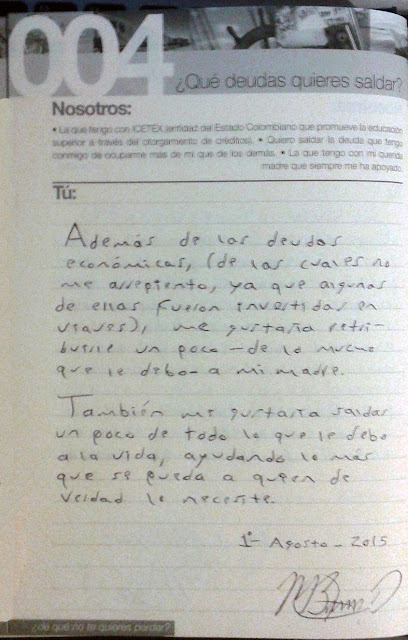 004
¿Qué deudas quieres saldar?
Nosotros:
• La que tengo con ICETEX (entidad del Estado Colombiano que promueve la educación
superior a través del otorgamiento de créditos). • Quiero saldar la deuda que tengo
conmigo de ocuparme más de mí que de los demás. • La que tengo con mi querida
madre que siempre me ha apoyado.
Tú:
Además de las deudas
económicas, (de las cuales no
me arrepiento, ya que algunas
de ellas fueron invertidas en
viajes), me gustaría retri-
buirle un poco -de lo mucho
que le debo- a mi madre.
También me gustaría saldar
un poco de todo lo que le debo
a la vida, ayudando lo más
que se pueda a quien de
verdad lo necesite.
1º- Agosto - 2015
¿de qué no te quieres perder?